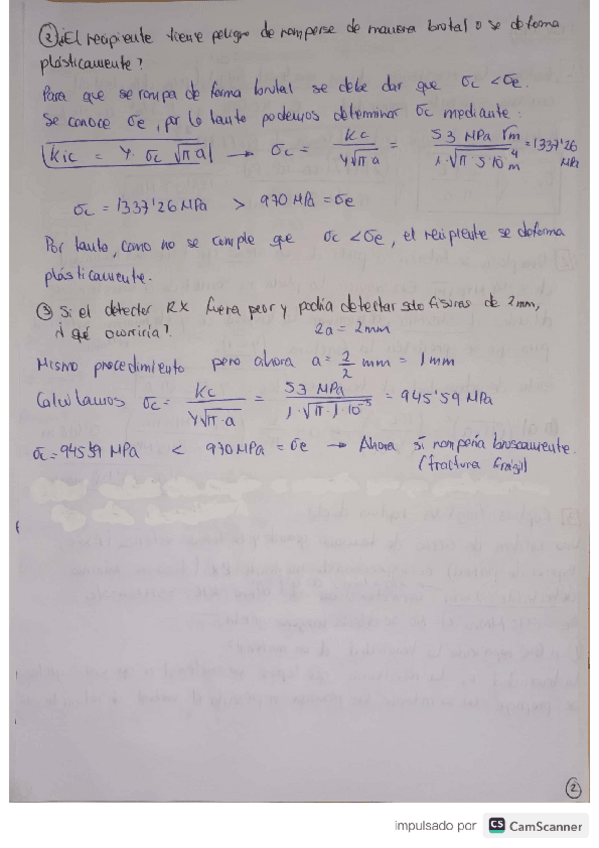 ② ¿El recipiente tiene peligro de romperse de manera brutal o se deforma
plásticamente?
Para que se rompa de forma brutal se debe dar que σc < σe.
Se conoce σe, por lo tanto podemos determinar σc mediante:
Kic = Y · σc √π a → σc = Kc / Y√π a = 53 MPa √m / 1·√π 5·10⁻⁴ m = 1337'26 MPa
σc = 1337'26 MPa > 970 MPa = σe
Por tanto, como no se cumple que σc < σe, el recipiente se deforma
plásticamente.
③ Si el detector RX fuera peor y podía detectar solo fisuras de 2mm,
¿qué ocurriría? 2a = 2mm
Mismo procedimiento pero ahora a = 2/2 mm = 1 mm
Calculamos σc = Kc / Y√π·a = 53 MPa / 1·√π·1·10⁻³ = 945'59 MPa
σc = 945'59 MPa < 970 MPa = σe → Ahora sí rompería bruscamente.
(fractura frágil)
②
impulsado por CS CamScanner